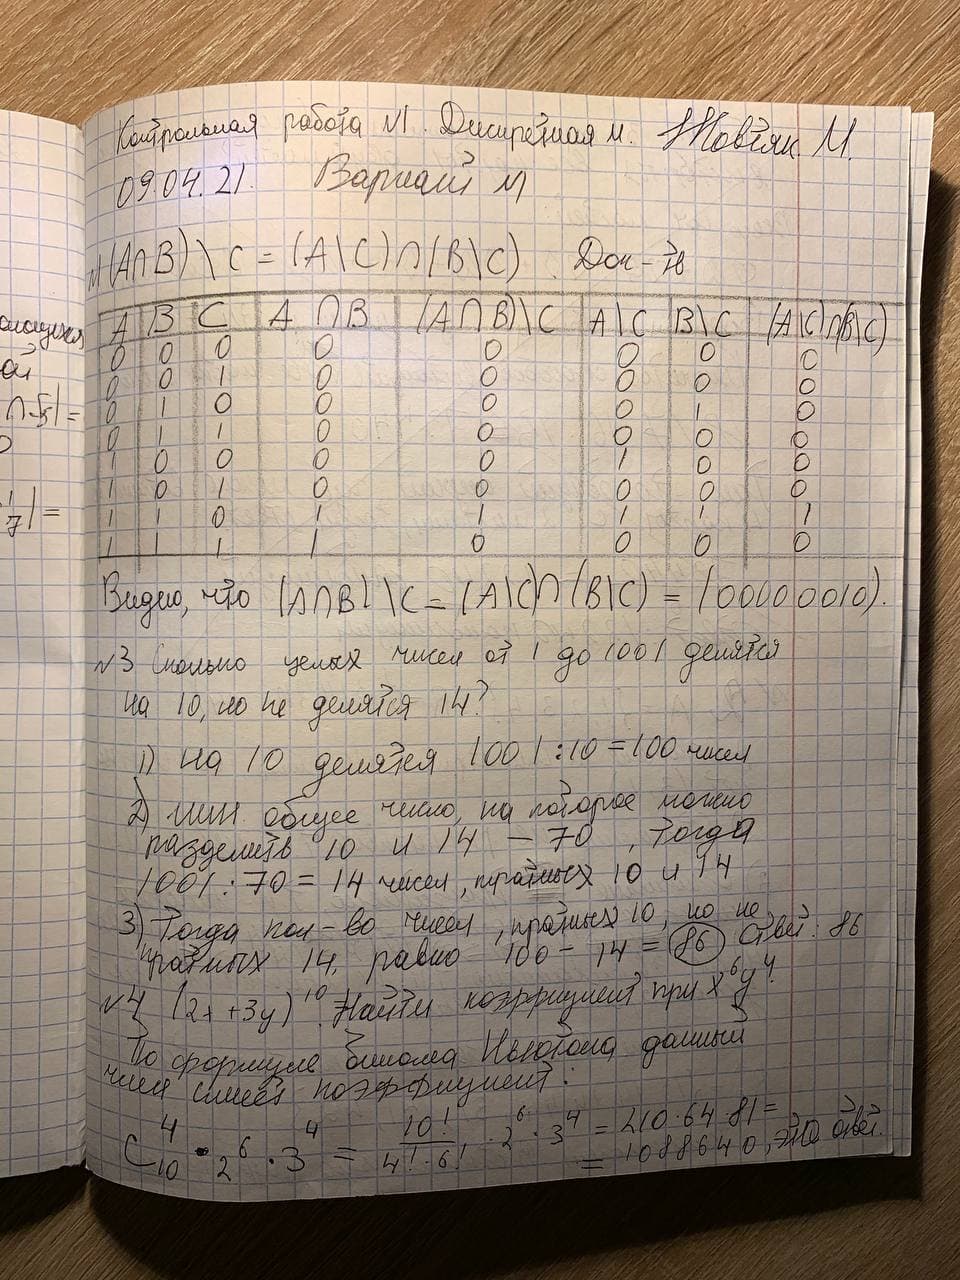 ой
∩ 5| =
7| =
Контрольная работа №1. Дискретная м. Жовтяк М.
09.04.21. Вариант
(A∩B)\C = (A\C)∩(B\C). Док-ть
A B C A∩B (A∩B)\C A\C B\C (A\C)∩(B\C)
0 0 0 0 0 0 0 0
0 0 1 0 0 0 0 0
0 1 0 0 0 0 1 0
0 1 1 0 0 0 0 0
1 0 0 0 0 1 0 0
1 0 1 0 0 0 0 0
1 1 0 1 1 1 1 1
1 1 1 1 0 0 0 0
Видно, что (A∩B)\C = (A\C)∩(B\C) = (00000010).
№3 Сколько целых чисел от 1 до 1001 делятся
на 10, но не делятся 14?
1) на 10 делятся 1001:10=100 чисел
2) мин. общее число, на которое можно
разделить 10 и 14 – 70, тогда
1001:70=14 чисел, кратных 10 и 14
3) Тогда кол-во чисел, кратных 10, но не
кратных 14, равно 100 – 14 = 86 Ответ: 86
№4 (2x+3y)^10. Найти коэффициент при x^6y^4.
По формуле бинома Ньютона данный
член имеет коэффициент:
C_10^4 · 2^6 · 3^4 = 10!/(4!·6!) · 2^6 · 3^4 = 210·64·81 =
= 1088640, это ответ.